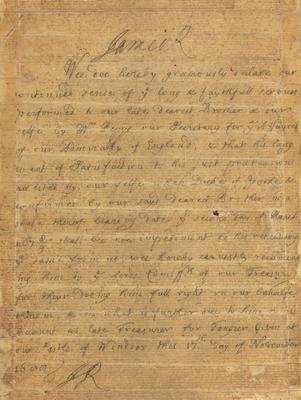 James R
Wee doe hereby graciously declare our
continued sense of yᵉ long & faithfull services
performed to our late dearest Brother & our
selfe by Mʳ Pepys our Secretary for yᵉ Affayres
of our Admiralty of England, & that his long
want of Satisfaction to his just pretentions
attested by our selfe when Duke of Yorke &
confirmed by our said dearest Brother
thereof bearing date yᵉ second day of March
shall bee noe impediment to his receiving
yᵉ same from us, wee hereby earnestly recommend
ing him to yᵉ Lords Comᵐʳˢ of our Treasury
for their doeing him full right on our behalfe
therein, & in what is further due to him
account as late Treasurer for Tangier. Given at
our Castle of Windsor this 17ᵗʰ day of November
JR